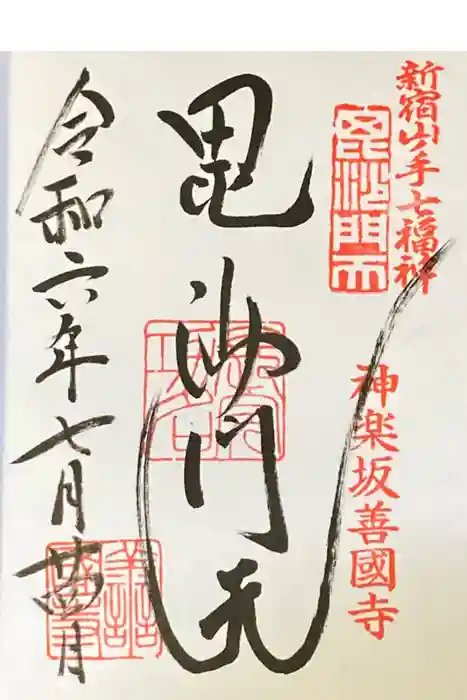 新宿山ノ手七福神
毘沙門天
神楽坂善國寺
毘沙門天
令和六年七月